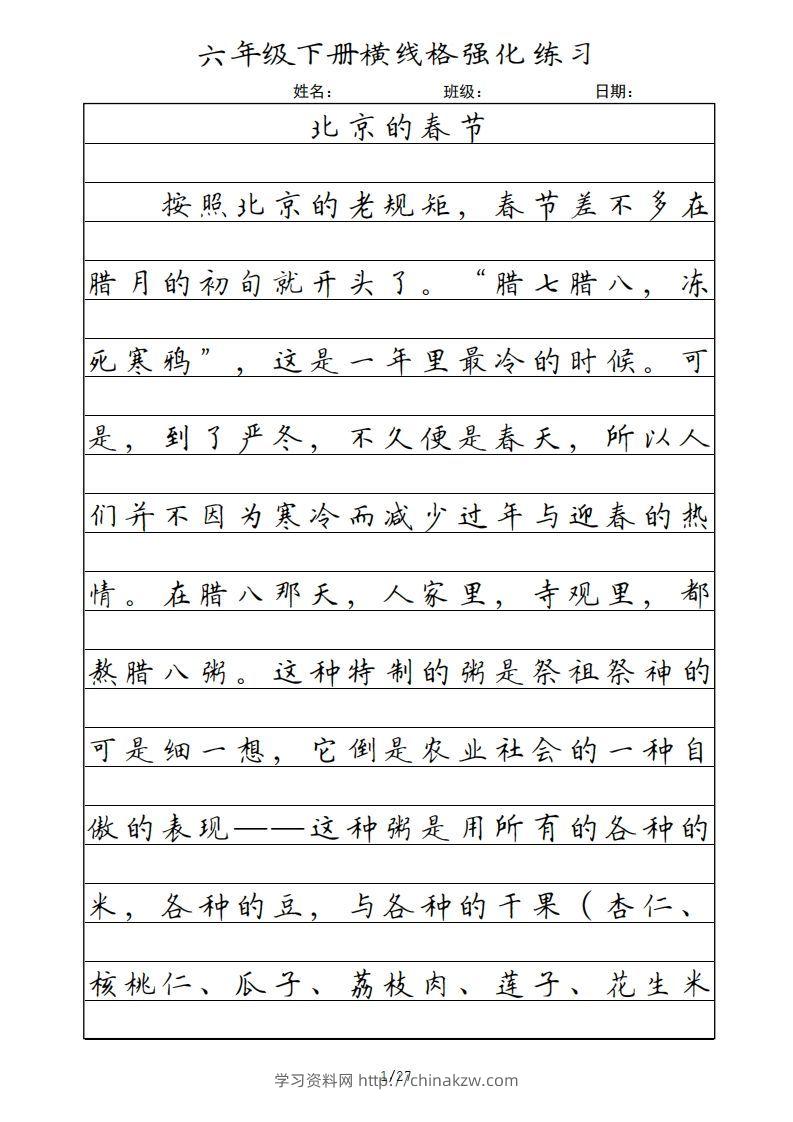 六年级下册横线格强化练习
姓名： 班级： 日期：
北京的春节
按照北京的老规矩，春节差不多在
腊月的初旬就开头了。“腊七腊八，冻
死寒鸦”，这是一年里最冷的时候。可
是，到了严冬，不久便是春天，所以人
们并不因为寒冷而减少过年与迎春的热
情。在腊八那天，人家里，寺观里，都
熬腊八粥。这种特制的粥是祭祖祭神的
可是细一想，它倒是农业社会的一种自
傲的表现——这种粥是用所有的各种的
米，各种的豆，与各种的干果（杏仁、
核桃仁、瓜子、荔枝肉、莲子、花生米
1/27
学习资料网 http://chinakzw.com